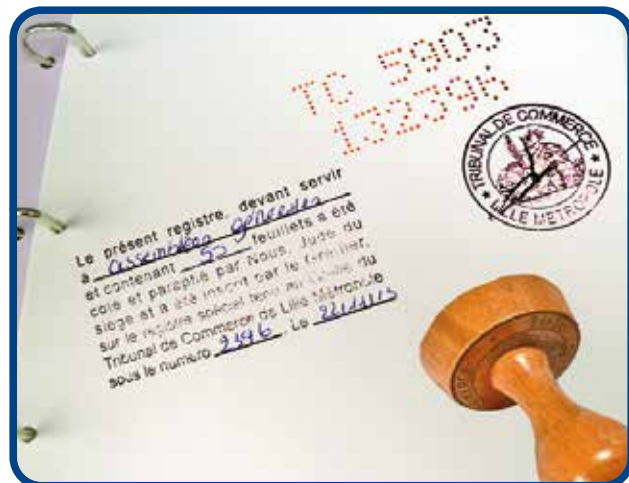 TC 5903
132396
TRIBUNAL DE COMMERCE
LILLE METROPOLE
Le présent registre, devant servir
à assemblées générales
et contenant 50 feuillets a été
coté et paraphé par Nous, Juge du
siège et a été inscrit par le Greffier,
sur le registre spécial tenu au Greffe du
Tribunal de Commerce de Lille Métropole
sous le numéro 2396. Le 22/11/13